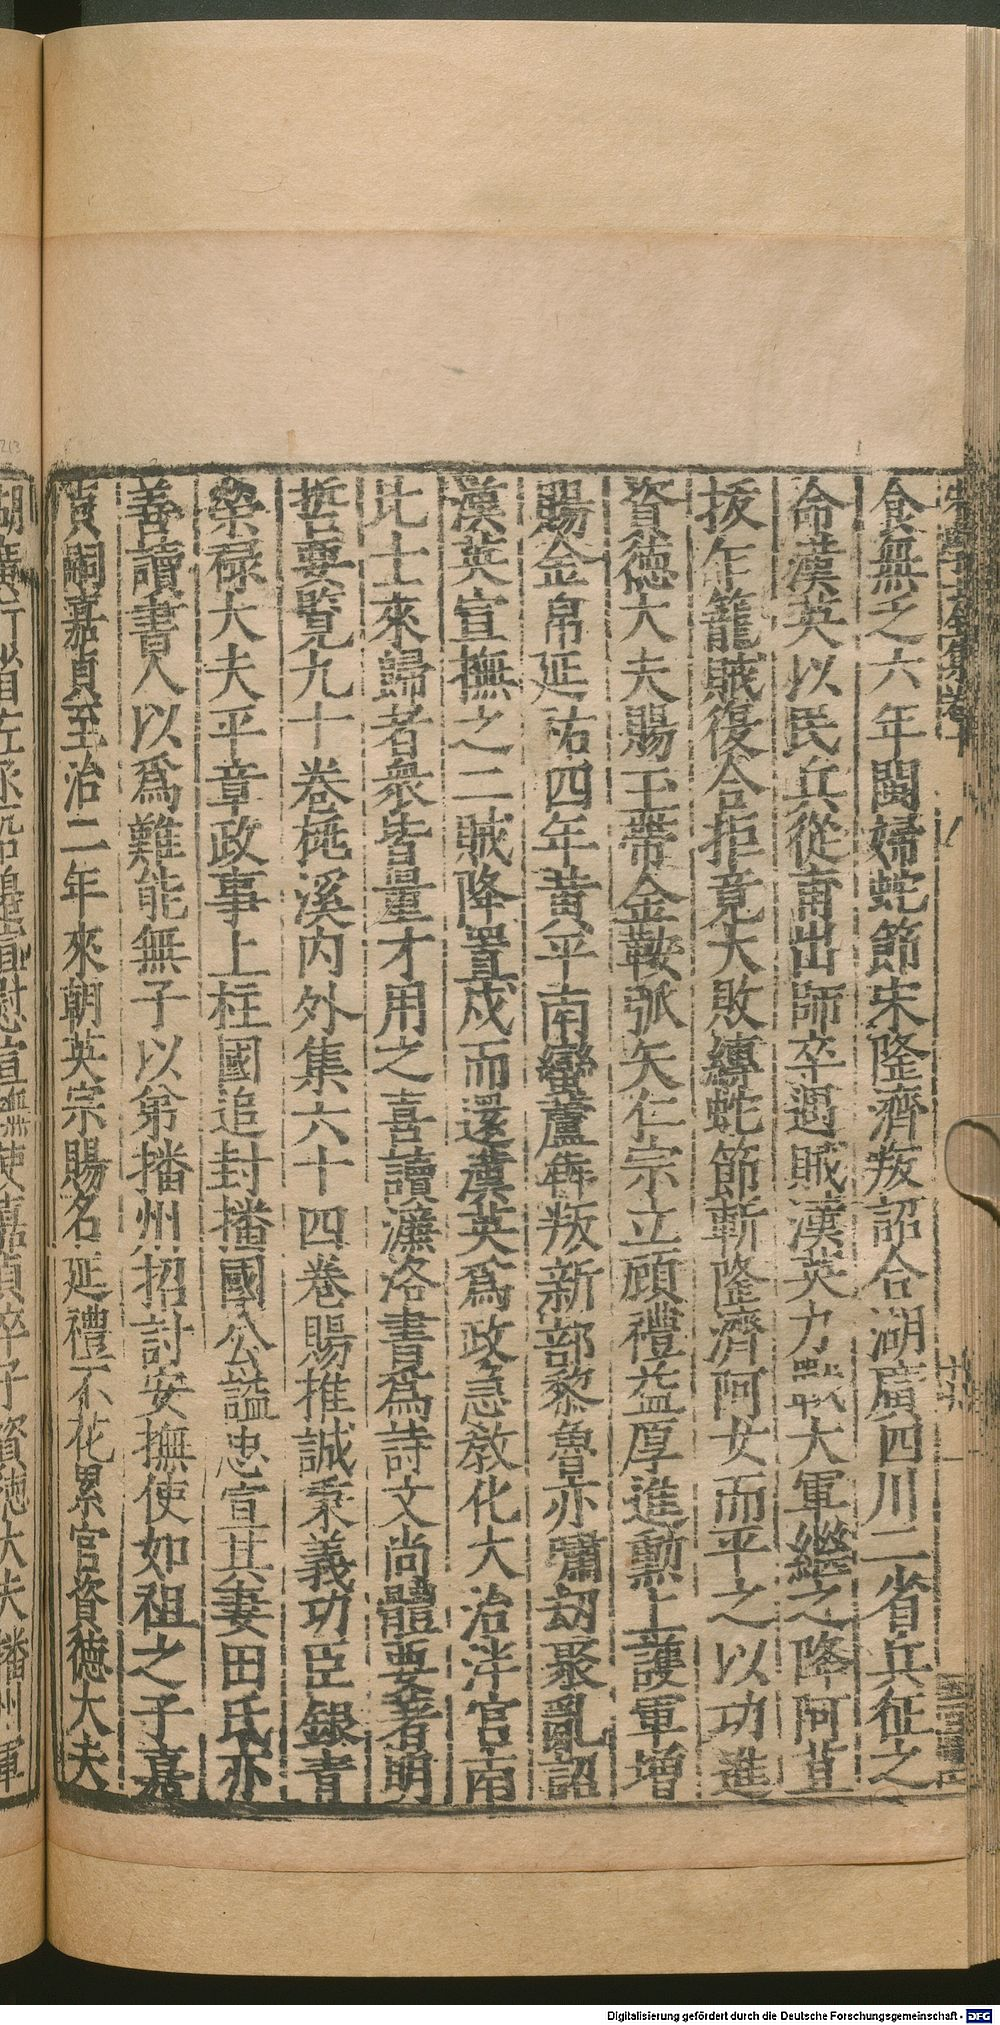 食無乏六年閩婦蛇節宋隆濟叛詔合湖廣四川二省兵征之
命漢英以民兵從甫出師卒遇賊漢英力戰大軍繼之降阿苴
拔乍籠賊復合拒竟大敗縛蛇節斬隆濟阿女而平之以功進
資德大夫賜玉帶金鞍弧矢仁宗立顧禮益厚進勳上護軍增
賜金帛延祐四年黃平南蠻蘆犇叛新部黎魯亦嘯刧聚亂詔
漢英宣撫之二賊降置戍而還漢英爲政急敎化大治泮宮南
北士來歸者衆皆量才用之喜讀濂洛書爲詩文尚體要著明
哲要覧九十卷桃溪內外集六十四卷賜推誠秉義功臣銀青
榮祿大夫平章政事上柱國追封播國公謚忠宣其妻田氏亦
善讀書人以爲難能無子以弟播州招討安撫使如祖之子嘉
貞嗣嘉貞至治二年來朝英宗賜名延禮不花累官資德大夫
湖廣行省左丞沿邊宣慰宣撫使嘉貞卒子資德大夫播州軍
Digitalisierung gefördert durch die Deutsche Forschungsgemeinschaft - DFG